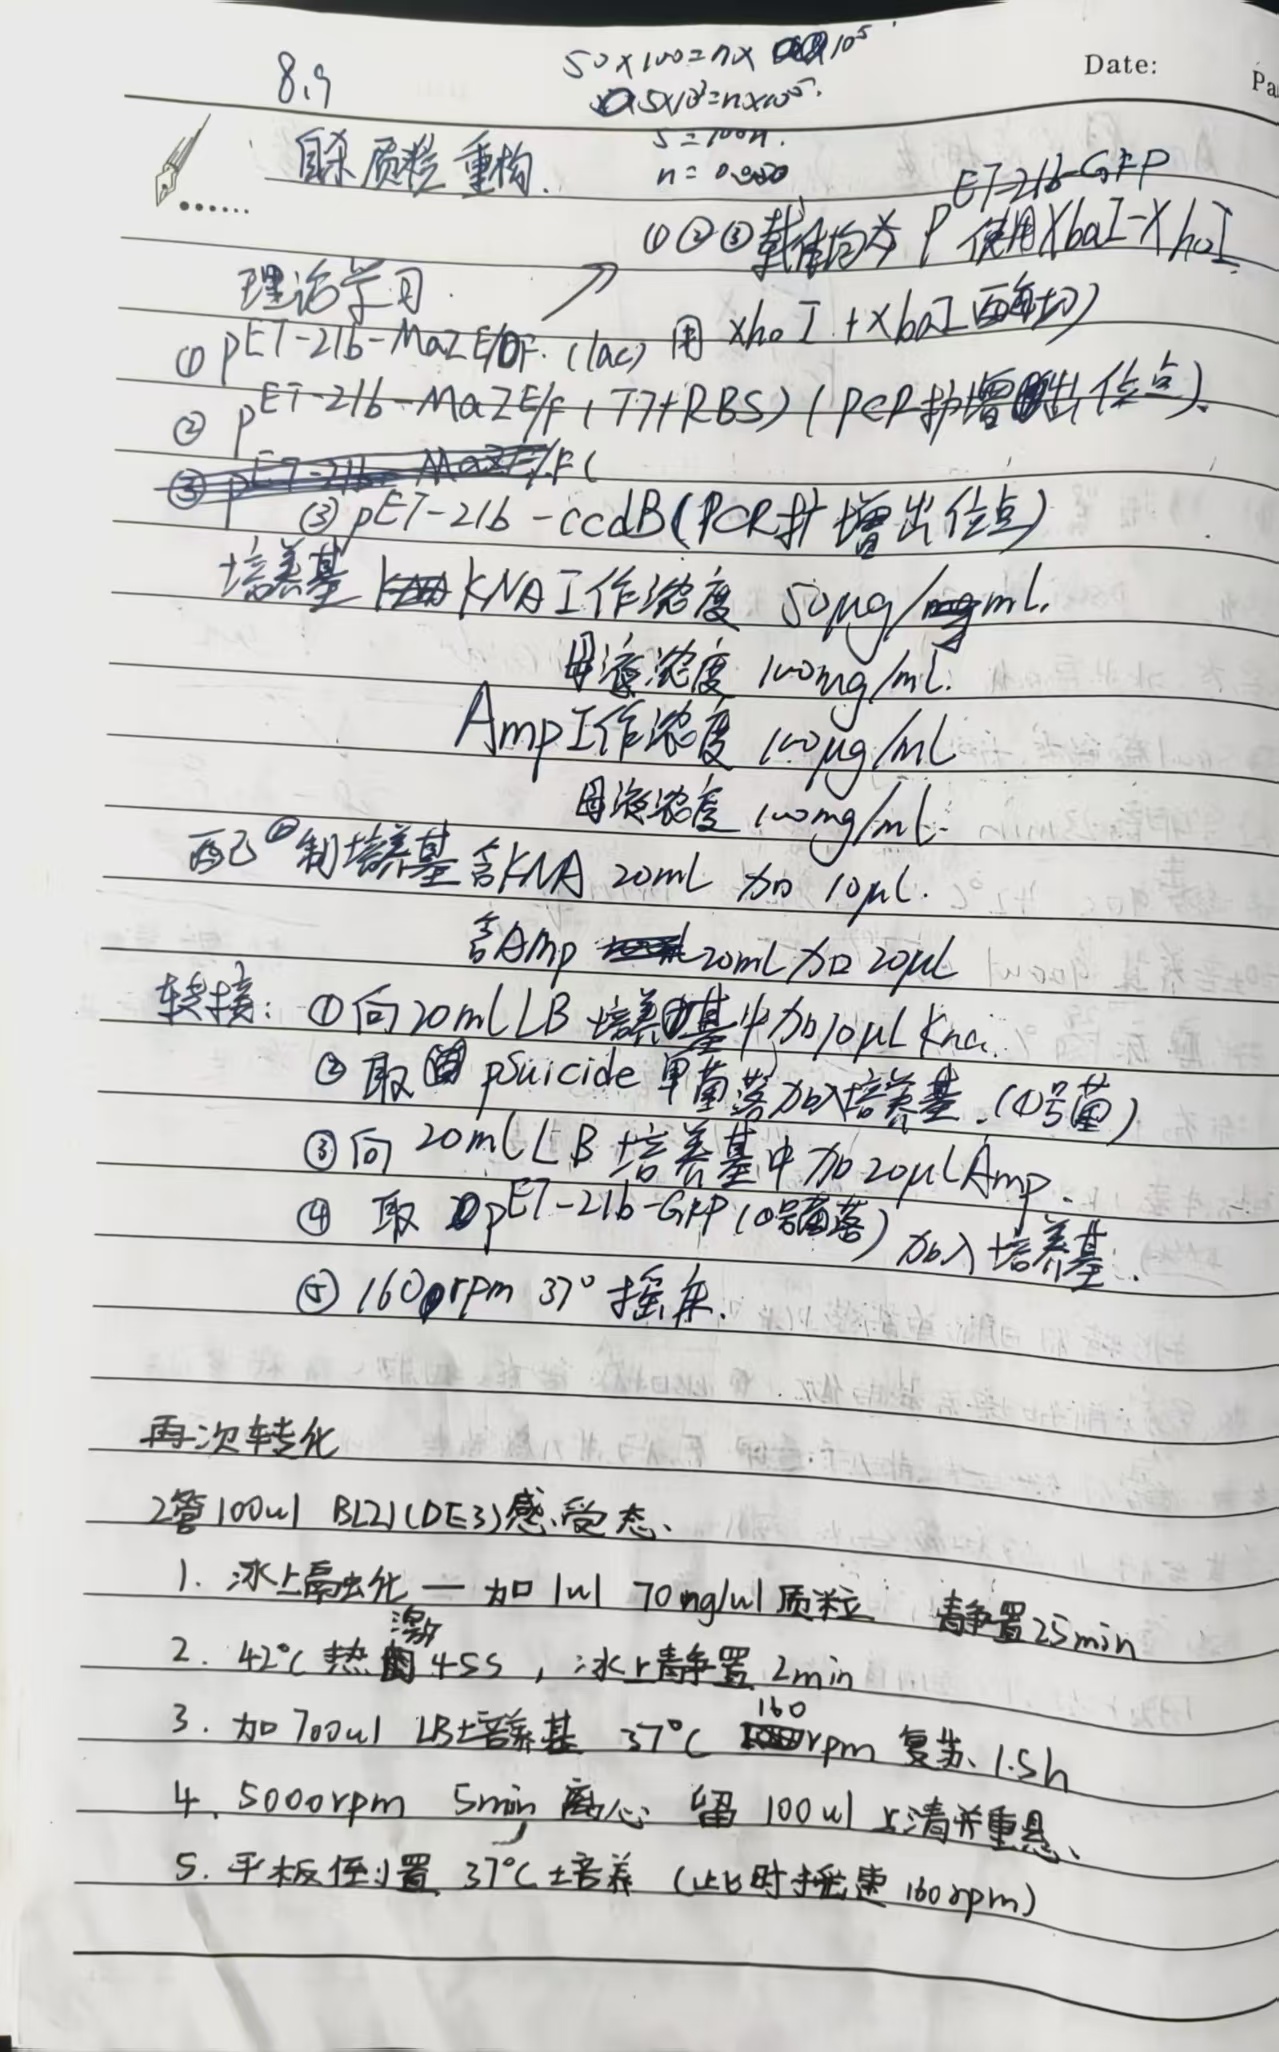 8.9
50×100=n×10⁵
5×10³=n×10⁵.
5=100n.
n=0.050
Date:
Pa
自杀质粒重构.
①②③载体均为 pET-21b-GFP 使用XbaI-XhoI
理论学习
① pET-21b-MazE/F. (lac) 用 XhoI+XbaI 酶切)
② pET-21b-MazE/F (T7+RBS) (PCR扩增出位点).
③ pET-21b-MazE/F(
③ pET-21b-ccdB(PCR扩增出位点)
培养基 KNA工作浓度 50μg/mL.
母液浓度 100mg/mL.
Amp工作浓度 100μg/mL
母液浓度 100mg/mL.
配制培养基含KNA 20mL 加 10μL.
含Amp 20mL加20μL
转接: ①向20mLLB培养基中加10μL Kna.
② 取 pSuicide 单菌落加入培养基.(①号菌)
③向 20mLLB 培养基中加20μLAmp.
④ 取 pET-21b-GFP(0号菌落) 加入培养基.
⑤ 160rpm 37° 摇床.
再次转化
2管100ul BL21(DE3)感受态.
1. 冰上融化 — 加 1ul 70ng/ul 质粒 静置25min
2. 42℃ 热激 45s, 冰上静置 2min
3. 加700ul LB培养基 37℃ 160rpm 复苏 1.5h
4. 5000rpm 5min 离心 留 100ul 上清并重悬.
5. 平板倒置 37℃培养 (此时摇速 160rpm)